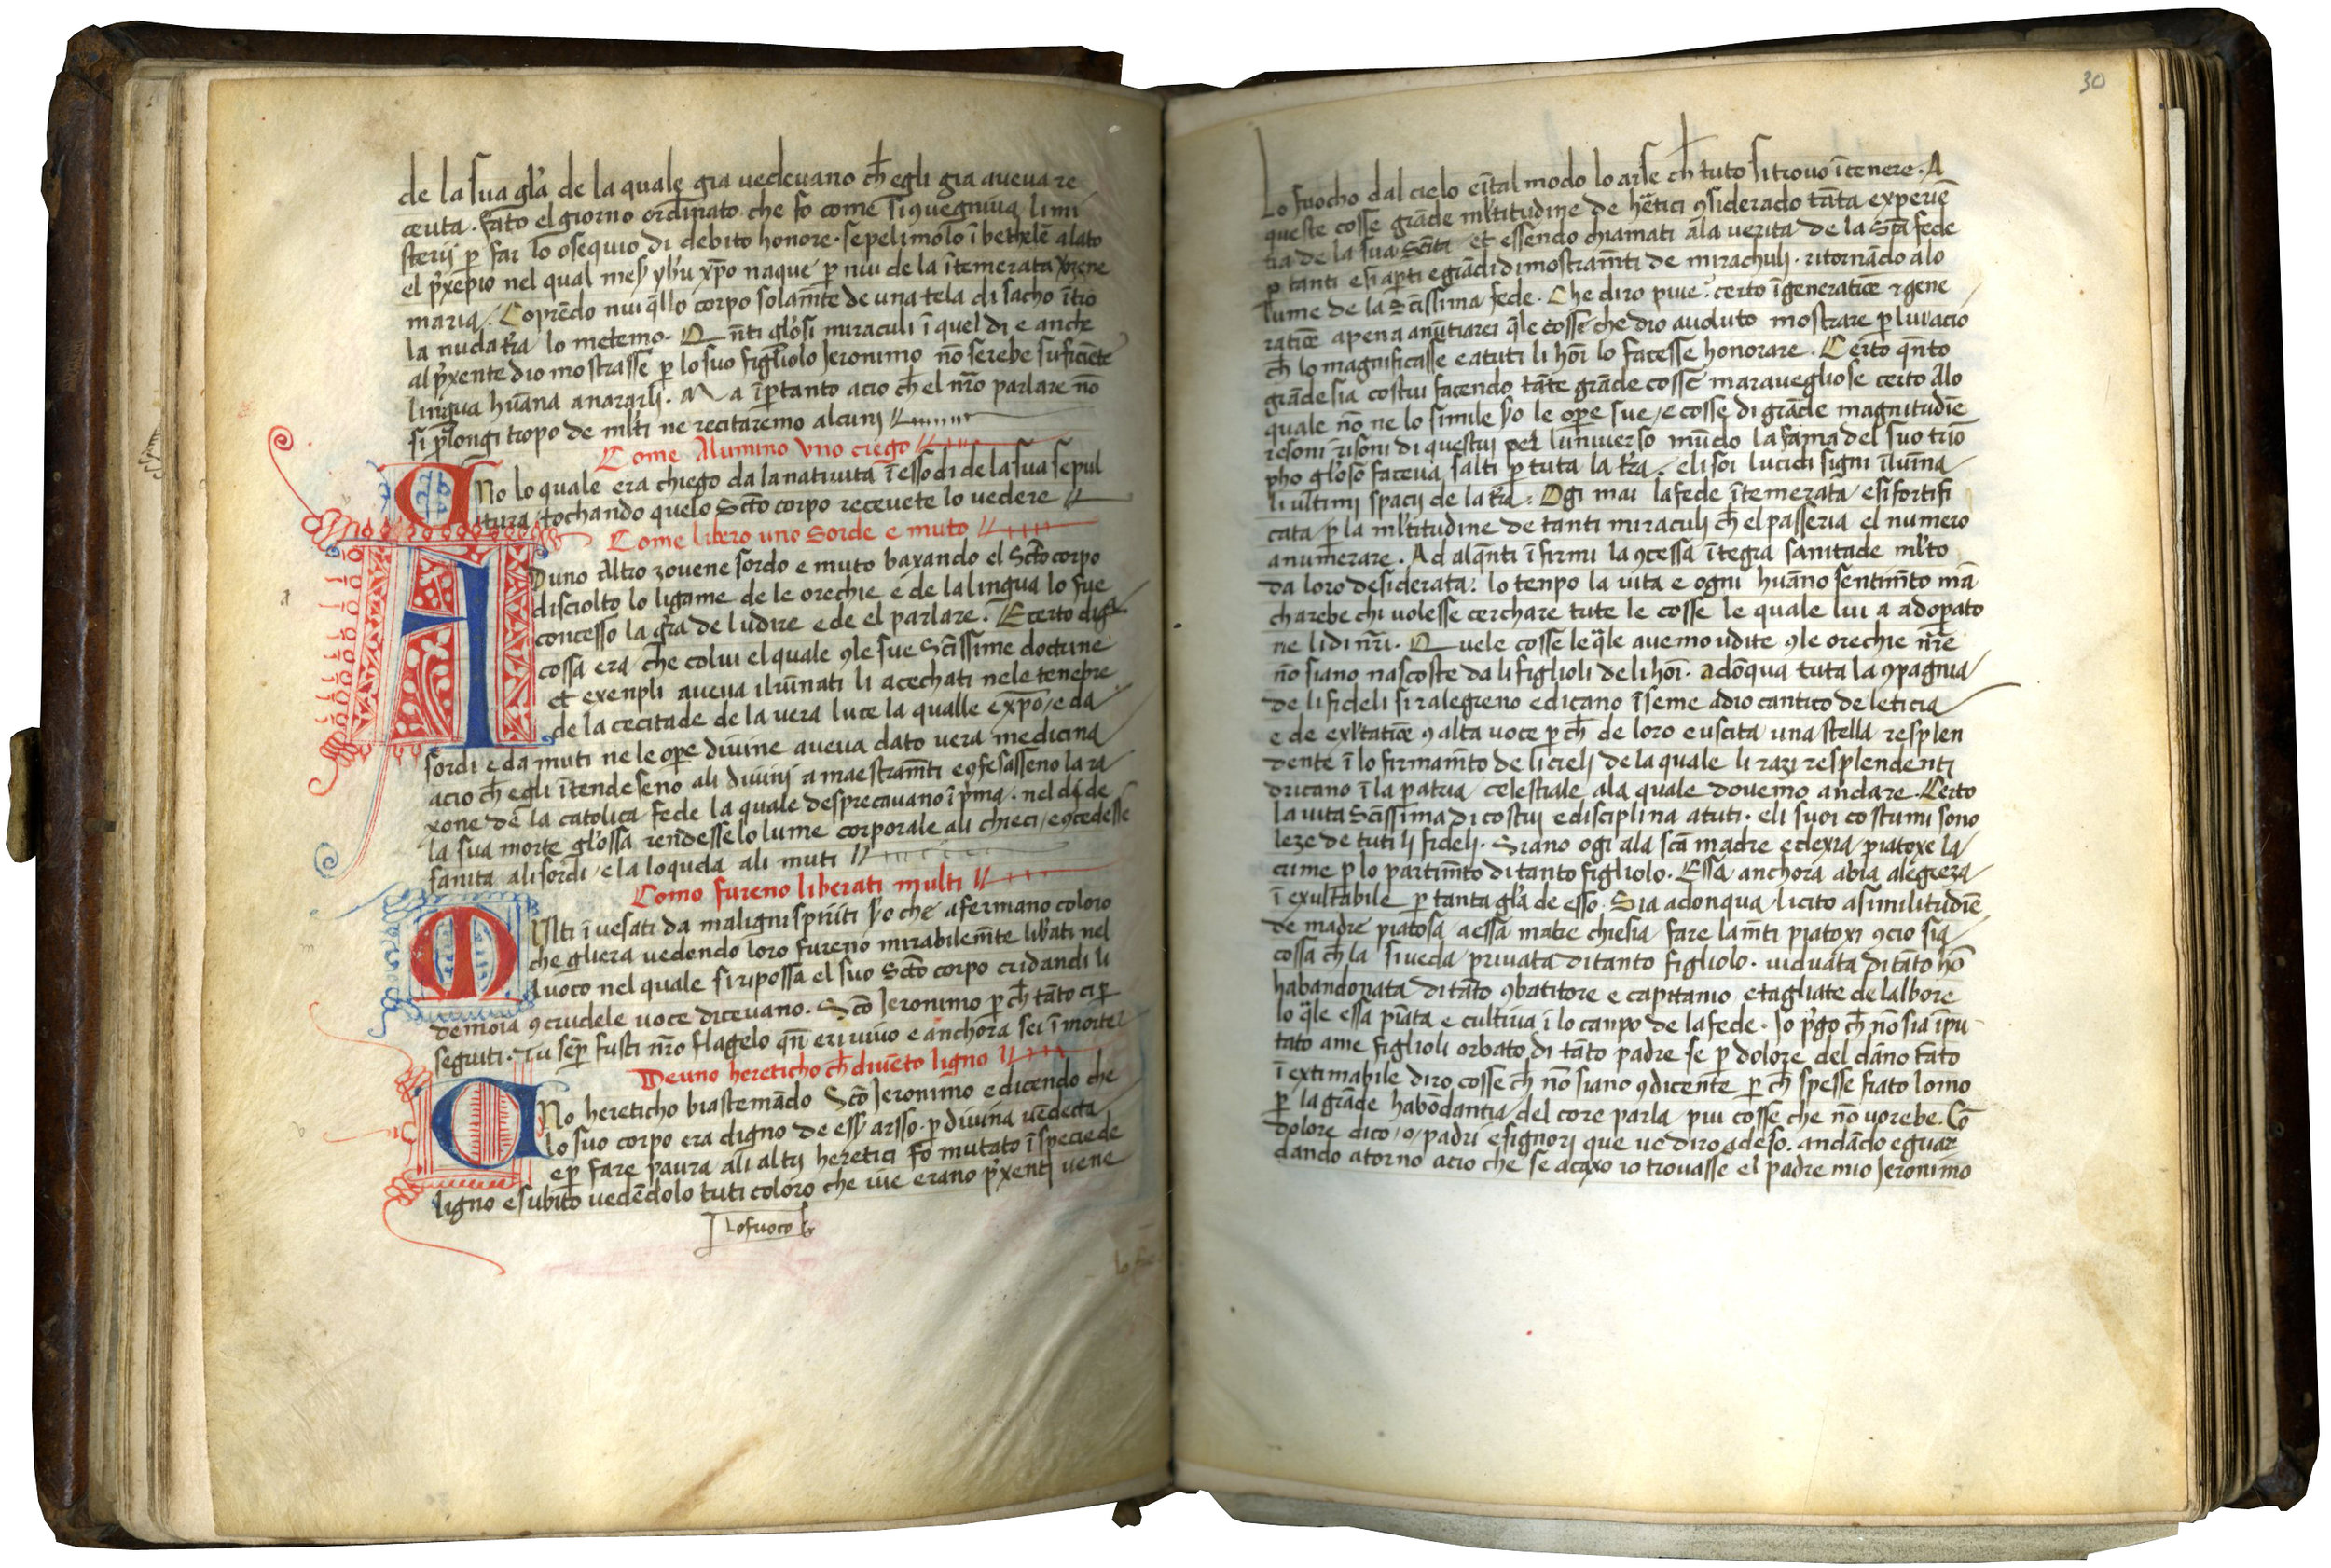 de la sua gl'a de la quale gia vedevano ch̄ egli gia aveva re
ceuta. fato el giorno ordinato che fo come si 9uegniva li mi
sterij p̱ far lo osequio di debito honore. sepelimolo ī bethelē alato
el p'xepio nel qual mes̄ yh̄u xp̄o naque p̱ nui de la ītemerata
maria. Coprēdo nui q̄llo corpo solam̄te de una tela di sacho ītro
la nuda t'ra lo metemo. Q nti gl'osi miraculi ī quel di e anche
al p'xente dio mostrasse p̱ lo suo figliolo Jeronimo nō serebe suficiēte
lingua hūana anararli. M a īp̱tanto acio ch̄ el nr̄o parlare nō
si p̱longi tropo de ml'ti ne recitaremo alcuni
Come Alumino vno ciego
U No lo quale era chiego da la nativita ī esso di de la sua sepul
tura tochando quelo Sc̄to corpo recevete lo vedere
Come libero uno Sorde e muto
A Duno Altro zovene sordo e muto baxando el Sc̄to corpo
disciolto lo ligame de le orechie e de la lingua lo fue
concesso la gr̄a de ludire e de el parlare. E certo diḡ
cossa era che colui el quale 9le sue Sc̄issime doctrine
et exenpli aveva ilūinati li acechati nele tenebre
de la cecitade de la vera luce la qualle e xp̄o / e da
sordi e da muti ne le ope divine aveva dato vera medicina
acio ch̄ egli ītendeseno ali divini amaestram̄ti e 9fesasseno la ra
xone de la catolica fede la quale desprecavano ī p'ma. nel di de
la sua morte gl'ossa rendesse lo lume corporale ali chieci / e 9cedesse
sanita ali sordi / e la loquela ali muti
Como fureno liberati multi
M Vlti ī vesati da maligni spiriti v'o che afermano coloro
che gliera vedendo loro fureno mirabilem̄te lib'ati nel
luoco nel quale si ripossa el suo Sc̄to corpo cridandi li
demoia 9 crudele voce dicevano. Sc̄o Jeronimo p̱ ch̄ tāto ci p̱
seguiti. Tu semp̱ fusti nr̄o flagelo qn̄ eri vivo e anchora sei ī morte
De uno hereticho ch̄ divēto ligno
U No hereticho biastemādo Sc̄o Jeronimo e dicendo che
lo suo corpo era digno de ess' arsso. p̱ divina vēdecta
e p̱ fare paura ali altrj heretici fo mutato ī specie de
ligno e subito vedēdolo tuti coloro che ive erano p'xentj vene
lo fuoco
30
Lo fuocho dal cielo e ītal modo lo arse ch̄ tuto si trovo ī cenere. A
queste cosse grāde ml'titudine de hētici 9siderado tāta experiē
tia de la sua Sc̄ita et essendo chiamati ala verita de la Sc̄a fede
p̱ tanti e si ap̱ti e grādi dimostram̄ti de mirachulj. ritornādo alo
lume de la Sc̄issima fede. Che diro piue. certo ī generatiōe & gene
ratiōe apena anūtiarei q̄le cosse che dio a voluto mostrare p̱ lui acio
ch̄ lo magnificasse e a tuti li hoī lo facesse honorare. Certo qn̄to
grāde sia costui facendo tāte grāde cosse maravegliose certo Alo
quale nō ne lo simile v'o le op̱e sue / e cosse di grāde magnitudīe
resoni risoni di questui per luniverso mūdo la fama del suo trīo
pho gl'oso faceva salti p̱ tuta la t'ra. e li soi lucidi signi ilūina
li ultimi spacij de la t'ra. Ogi mai la fede ītemerata e si fortifi
cata p̱ la ml'titudine de tanti miraculj ch̄ el passeria el numero
anumerare. Ad alq̄nti īfirmi la 9cessa ītegra sanitade ml'to
da loro desiderata. lo tenpo la vita e ogni huāno sentim̄to mā
charebe chi volesse cerchare tute le cosse le quale lui a adop̱ato
ne li di nr̄i. Q uele cosse le q̄le avemo udite 9le orechie nr̄e
nō siano nascoste da li figlioli de li hoī. adōqua tuta la 9pagnia
de li fideli si ralegreno e dicano īseme a dio cantico de leticia
e de exl'tatiōe 9 alta voce p̱ ch̄ de loro e uscita una stella resplen
dente ī lo firmam̄to de li cielj de la quale li razi resplendenti
dricano ī la patria celestiale ala quale dovemo andare. Certo
la vita Sc̄issima di costui e disciplina a tuti. e li suoi costumi sono
leze de tuti li fidelj. Siano ogi ala sc̄a madre eclexia piatoxe la
crime p̱ lo partim̄to di tanto figliolo. Essa anchora abia alegreza
ī exultabile p̱ tanta gl'a de esso. Sia adonqua licito a similitudīe
de madre piatosa a essa matre chiesia fare lam̄ti piatoxi 9cio sia
cossa ch̄ la si veda privata di tanto figliolo. viduata di tāto hō
habandonata di tāto 9batitore e capitanio e tagliate de lalbore
lo q̄le essa piāta e cultiva ī lo canpo de la fede. Io p'go ch̄ nō sia īpu
tato a me figlioli orbato di tāto padre se p̱ dolore del dāno fato
ī extimabile diro cosse ch̄ nō siano 9dicente p̱ ch̄ spesse fiato lomo
p̱ la grāde habōdantia del core parla piu cosse che nō vorebe. Cō
dolore dico / o / padri e signorj que ve diro adeso. andādo e guar
dando atorno acio che se acaxo io trovasse el padre mio Jeronimo